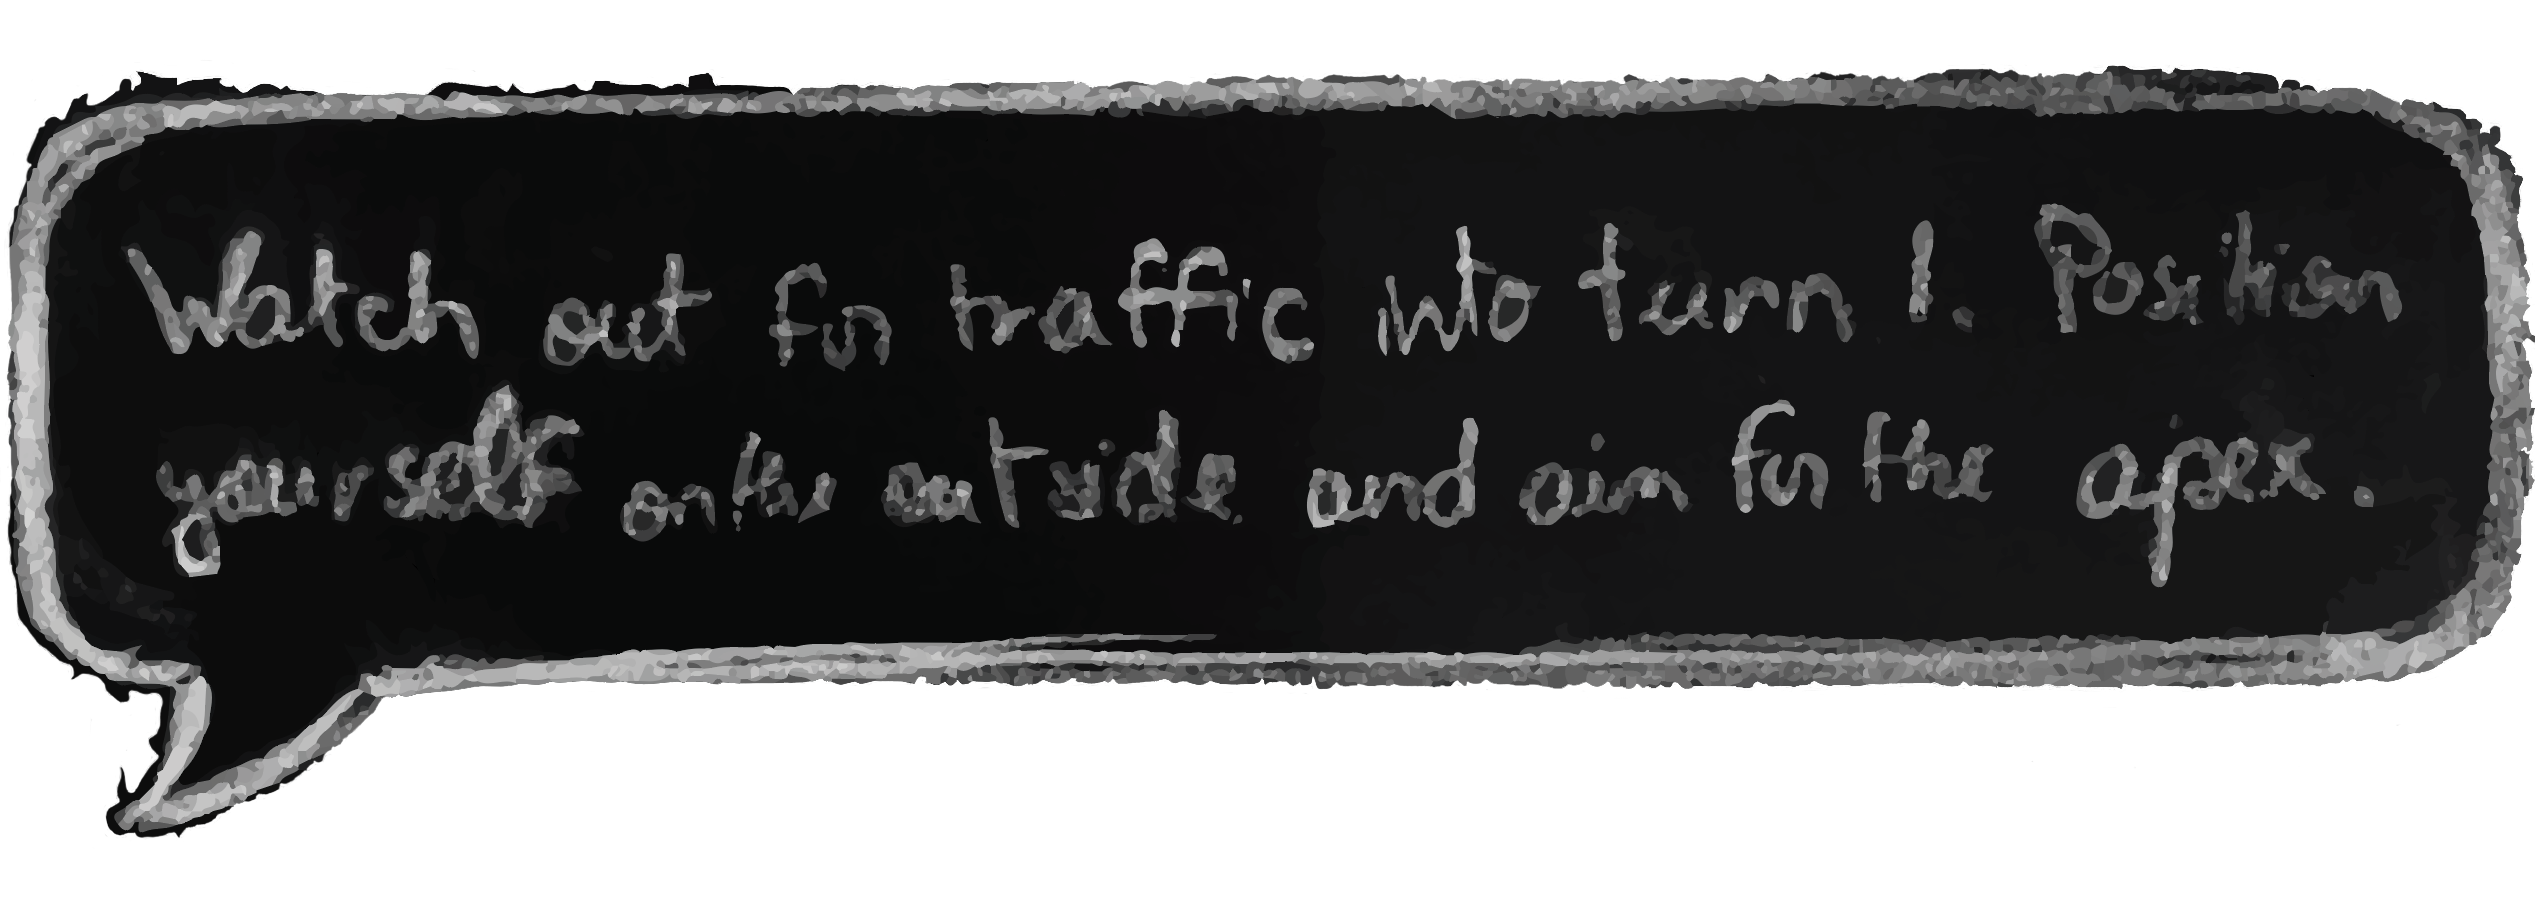 Watch out for traffic into turn 1. Position
yourself on the outside and aim for the apex.